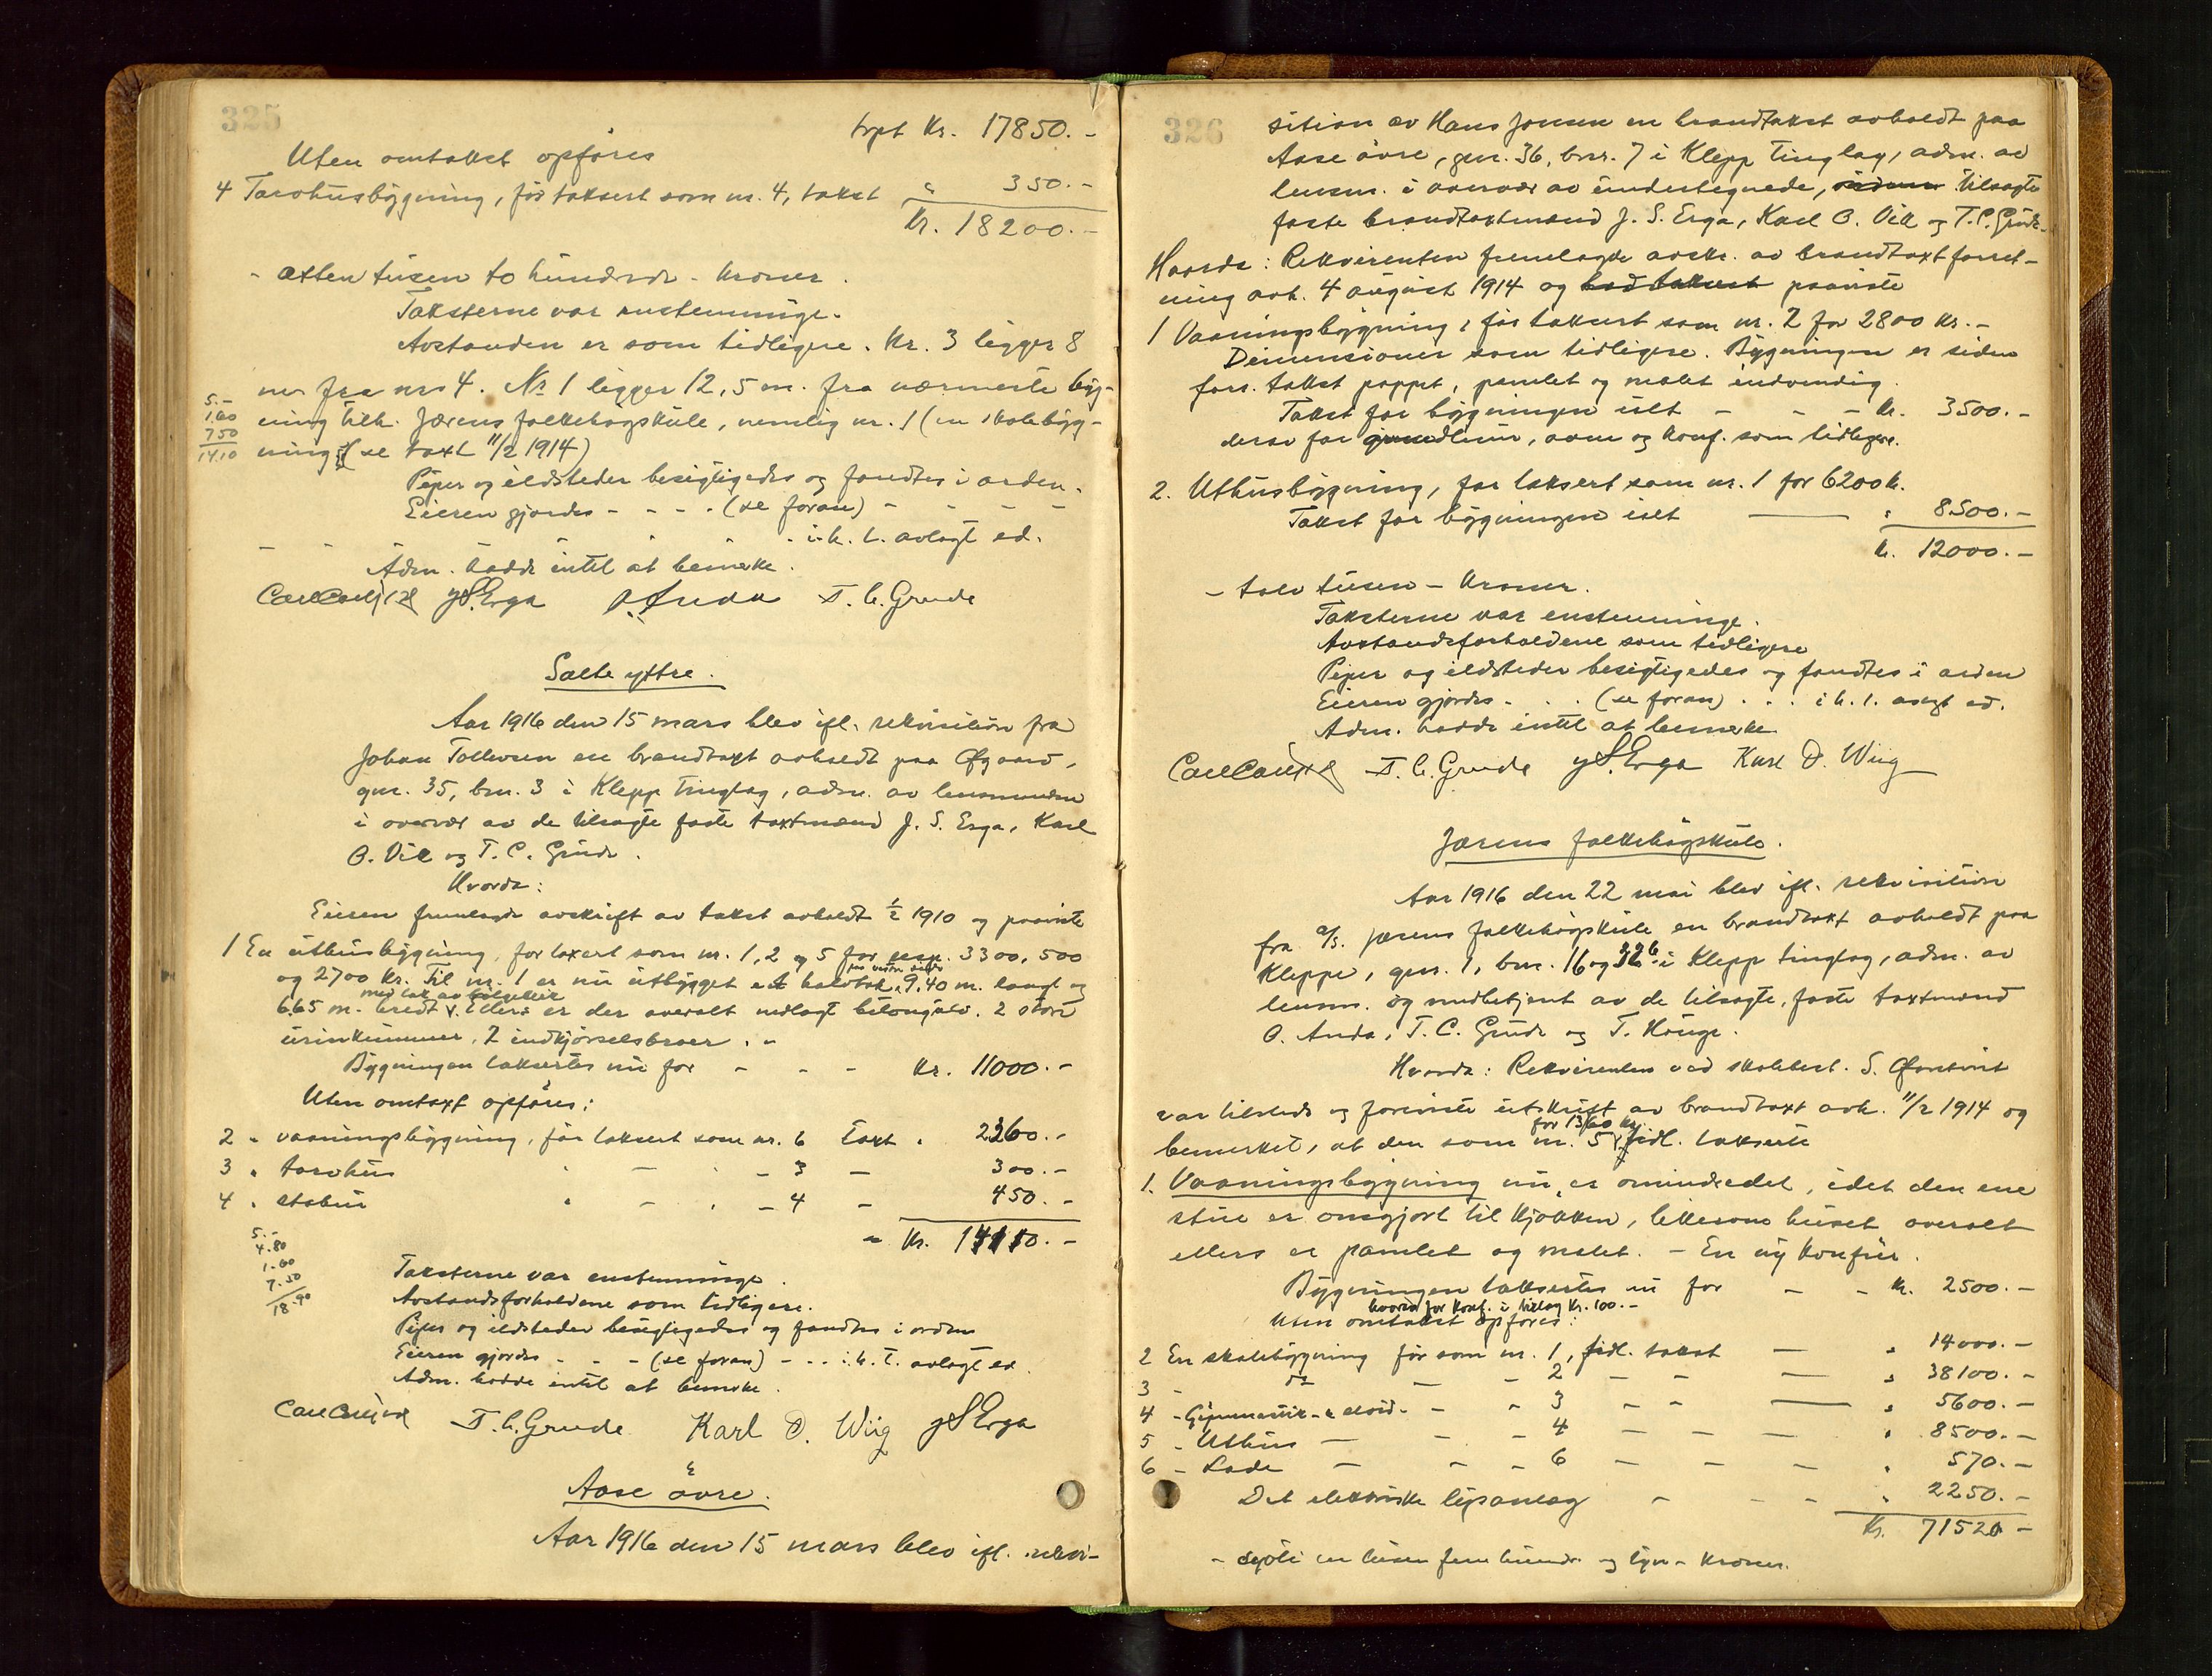 325
trpt Kr. 17850.-
Uten omtakst opføres
4 Torvhusbygning, før taksert som nr. 4, takst " 350.-
Kr. 18200.-
- Atten tusen to hundrede - kroner.
Taksterne var enstemmige.
Avstanden er som tidligere. Nr. 3 ligger 8
mr fra nr 4. No 1 ligger 12,5 m. fra nærmeste byg-
ning tilh. Jærens folkehøgskule, nemlig nr. 1 (en skolebyg-
ning) (se taxt 11/2 1914)
5.-
1.60
7.50
14.10
Piper og ildsteder besigtigedes og fandtes i orden.
Eieren gjordes - - - (se foran) - - - -
- - - - - i h. t. avlagt ed.
Adm. hadde intet at bemerke.
J. S. Erga O. Anda T. C. Grude
Salte yttre.
Aar 1916 den 15 mars blev ifl. rekvisition fra
Johan Tollevsen en brandtaxt avholdt paa Øgaard,
gnr. 35, bnr. 3 i Klepp tinglag, adm. av lensmanden
i overvær av de tilsagte faste taxtmænd J. S. Erga, Karl
O. Vik og T. C. Grude.
Hvorda:
Eieren fremlagde avskrift av takst avholdt 1/2 1910 og paaviste
1 En uthusbygning, før taxert som nr. 1, 2 og 5 for resp. 3300, 500
og 2700 kr. Til nr. 1 er nu utbygget et halvtak paa vestre side, 9.40 m. langt og
6.65 m. bredt med tak av bølgeblik. Ellers er der overalt nedlagt betongulv. 2 store
urinkummer, 2 indkjørselsbroer. -
Bygningen taksertes nu for - - - kr. 11000.-
Uten omtaxt opføres:
2 " vaaningsbygning, før taksert som nr. 6 taxt " 2360.-
3 " torvhus " - " - 3 - 300.-
4 " stabur " - " - 4 - 450.-
" Kr. 14110.-
5.-
4.80
1.60
7.50
18.90
Taksterne var enstemmige.
Avstandsforholdene som tidligere.
Piper og ildsteder besigtigedes og fandtes i orden
Eieren gjordes - - - (se foran) - - - i h. t. avlagt ed.
Adm. hadde intet at bemerke.
T. C. Grude Karl O. Wiig J. S. Erga
Aase øvre.
Aar 1916 den 15 mars blev ifl. rekvi-
326
sition av Hans Jonsen en brandtakst avholdt paa
Aase øvre, gnr. 36, bnr. 7 i Klepp tinglag, adm. av
lensm. i overvær av undertegnede, tilsagte
faste brandtaxtmænd J. S. Erga, Karl O. Vik og T. C. Grude.
Hvorda: Rekvirenten fremlagde avskr. av brandtaxtforret-
ning avh. 4 august 1914 og paaviste
1 Vaaningsbygning, før taksert som nr. 2 for 2800 kr.-
Dimensioner som tidligere. Bygningen er siden
forr. takst pappet, panelet og malet indvendig.
Takst for bygningen isct - - - kr. 3500.-
derav for grundmur, ovne og konf. som tidligere.
2. Uthusbygning, før taksert som nr. 1 for 6200 k.
Takst for bygningen isct — " 8500.-
kr. 12000.-
- tolv tusen - kroner.
Taksterne var enstemmige.
Avstandsforholdene som tidligere
Piper og ildsteder besigtigedes og fandtes i orden
Eieren gjordes - - - (se foran) - - - i h. t. avlagt ed.
Adm. hadde intet at bemerke
T. C. Grude J. S. Erga Karl O. Wiig
Jærens folkehøgskule.
Aar 1916 den 22 mai blev ifl. rekvisition
fra a/s. Jærens folkehøgskule en brandtaxt avholdt paa
Kleppe, gnr. 1, bnr. 16 og 326 i Klepp tinglag, adm. av
lensm. og medbetjent av de tilsagte, faste taxtmænd
O. Anda, T. C. Grude og T. Hauge.
Hvorda: Rekvirenten ved skolebest. S.
var tilstede og foreviste utskrift av brandtaxt avh. 11/2 1914 og
bemerket, at den som nr. 5 for 1360 kr. tidl. takserte
1. Vaaningsbygning nu er omindredet, idet den ene
stue er omgjort til kjøkken, likesom huset overalt
ellers er panelet og malet. - En ny komfur.
Bygningen taksertes nu for - - kr. 2500.-
hvorav for konf. i tillæg kr. 100.-
Uten omtakst opføres:
2 En skolebygning før som nr. 1, tidl. takst — " 14000.-
3 - do - - 2 - - — " 38100.-
4 - Gymnastik- & sløid- - - 3 - - — " 5600.-
5 - Uthus - - - 4 - - - " 8500.-
6 - Lade - - - 6 - - - " 570.-
Det elektriske lysanlæg - - - " 2250.-
Kr. 71520.-
- sytti en tusen fem hundr. og tyve - kroner.